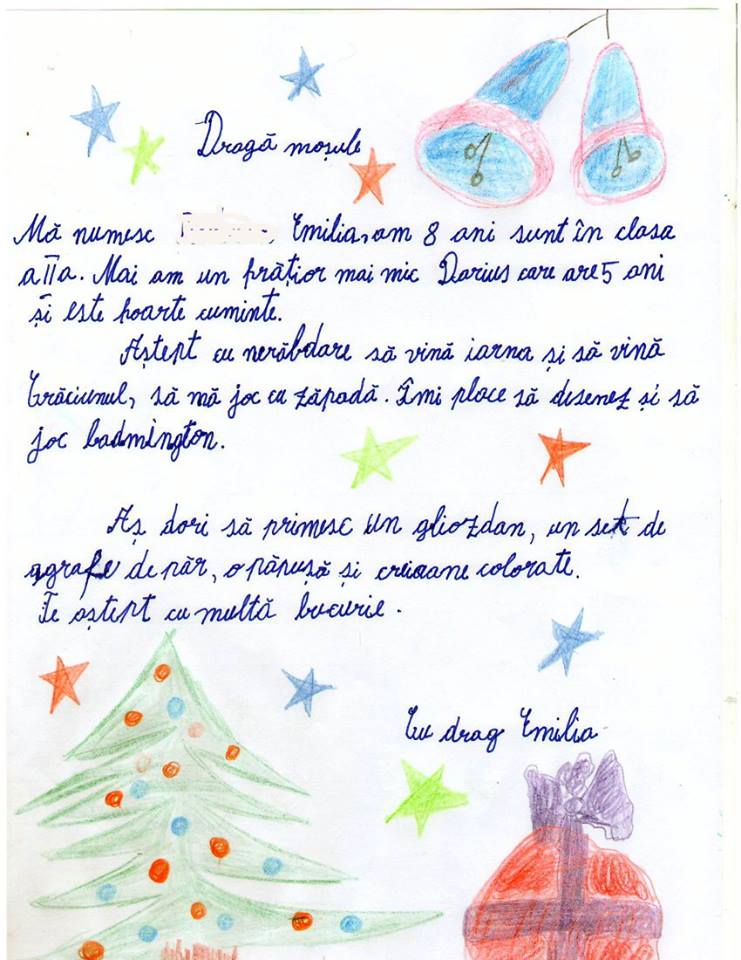 Dragă moșule
Mă numesc Emilia, am 8 ani sunt în clasa
a II a. Mai am un frățior mai mic Darius care are 5 ani
și este foarte cuminte.
Aștept cu nerăbdare să vină iarna și să vină
Crăciunul, să mă joc cu zăpadă. Îmi place să desenez și să
joc badmington.
Aș dori să primesc un gliozdan, un set de
agrafe de păr, o păpușă și creioane colorate.
Te aștept cu multă bucurie.
Cu drag Emilia